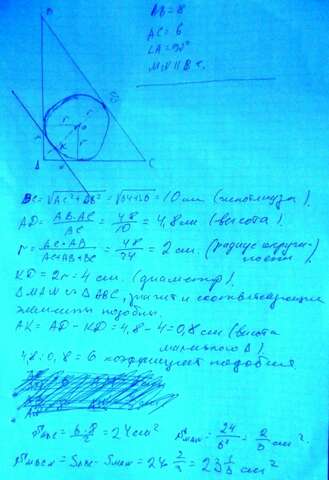 AB = 8
AC = 6
∠A = 90°
MN || BC
B
r
r
r
A
C
BC = √AC² + AB² = √64+36 = 10 см (гипотенуза).
AD = AB·AC / BC = 48 / 10 = 4,8 см (высота).
r = AC·AB / AC+AB+BC = 48 / 24 = 2 см. (радиус окружности)
KD = 2r = 4 см. (диаметр).
Δ MAN ∾ Δ ABC, значит и соответствующие
элементы подобны.
AK = AD - KD = 4,8 - 4 = 0,8 см (высота
маленького Δ).
4,8 : 0,8 = 6 коэффициент подобия.
S ABC = 6·8 / 2 = 24 см²
S MAN = 24 / 6² = 2 / 3 см².
S MBCN = S ABC - S MAN = 24 - 2/3 = 23 1/3 см²